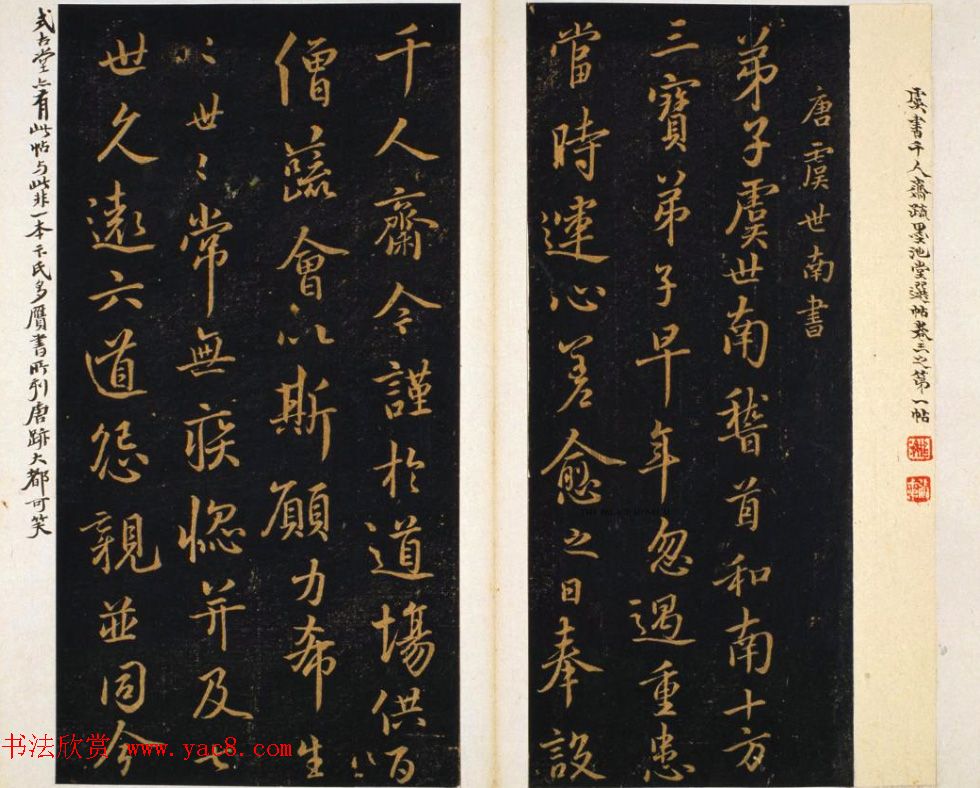 虞書千人齋疏墨池堂選帖卷三之第一帖
唐虞世南書
弟子虞世南稽首和南十方
三寶弟子早年忽遇重患
當時運心差愈之日奉設
千人齋今謹於道場供百
僧蔬會以斯願力希生
〻世〻常無疾惱并及七
世久遠六道怨親並同今
式古堂亦有此帖與此非一本卞氏多贋書所刻唐跡大都可笑
书法欣赏 www.yac8.com